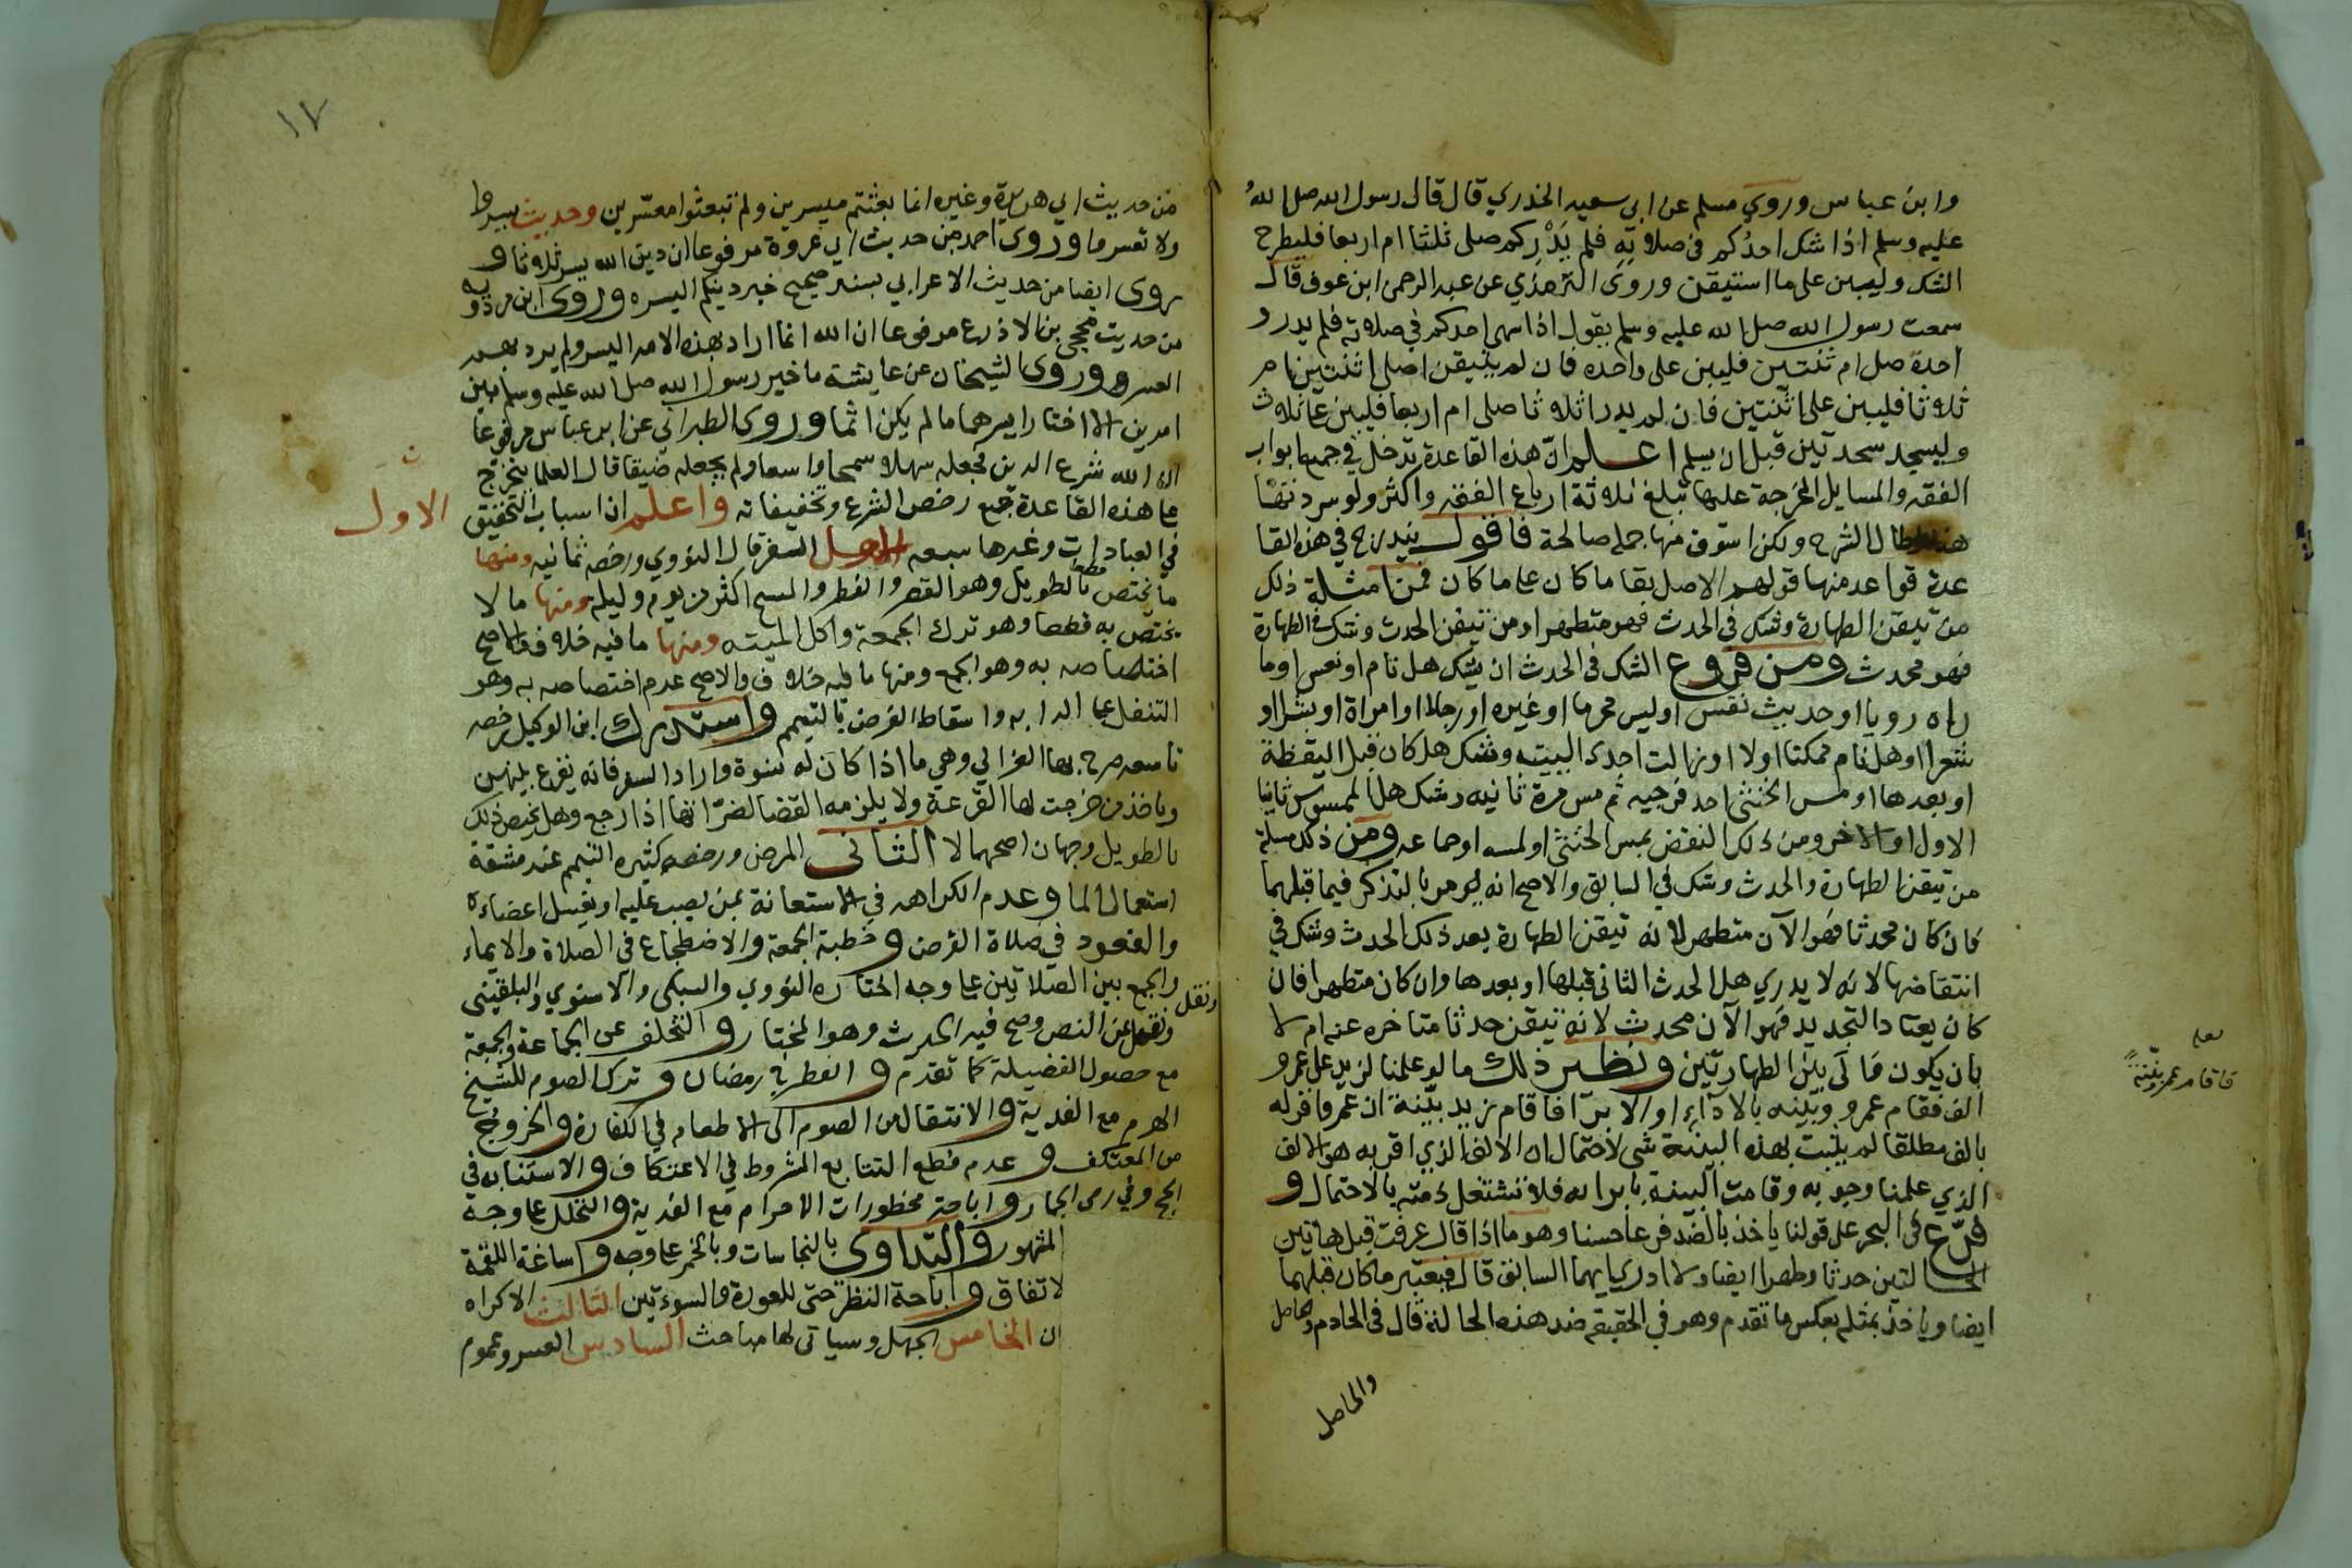 وابن عباس وروي مسلم عن ابي سعيد الخدري قال قال رسول الله صلى الله
عليه وسلم اذا شك احدكم في صلاته فلم يدركم صلى ثلثا ام اربعا فليطرح
الشك وليبن على ما استيقن وروى الترمذي عن عبد الرحمن ابن عوف قال
سمعت رسول الله صلى الله عليه وسلم يقول اذا سهى احدكم في صلاته فلم يدر و
احدة صلى ام ثنتين فليبن على واحده فان لم يتيقن اصلى اثنتين ام
ثلاثا فليبن على اثنتين فان لم يدر اثلاثا صلى ام اربعا فليبن على ثلاث
وليسجد سجدتين قبل ان يسلم اعلم ان هذه القاعدة تدخل في جميع ابواب
الفقه والمسايل المخرجة عليها تبلغ ثلاثة ارباع الفقه واكثر ولو سردتها
هنا لطال الشرح ولكن اسوق منها جملة صالحة فاقول يندرج في هذه القا
عدة قواعد منها قولهم الاصل بقا ما كان على ما كان فمن امثلة ذلك
من تيقن الطهارة وشك في الحدث فهو متطهر او من تيقن الحدث وشك في الطهارة
فهو محدث ومن فروع الشك في الحدث ان يشك هل نام او نعس او ما
راه رويا او حديث نفس او لمس محرما او غيره او رجلا او امراة او بشرا او
شعرا او هل نام ممكنا اولا او زالت احدى اليتيه وشك هل كان قبل اليقظة
او بعدها او لمس الخنثى احد فرجيه ثم مس مرة ثانيه وشك هل الممسوس ثانيا
الاول او الاخر ومن ذلك النقض بمس الخنثى او لمسه او جماعه ومن ذلك مسلة
من تيقن الطهارة والحدث وشك في السابق والاصح انه يومر بالتذكر فيما قبلهما
فان كان محدثا فهو الآن متطهر لانه تيقن الطهارة بعد ذلك الحدث وشك في
انتقاضها لانه لا يدري هل الحدث الثاني قبلها او بعدها وان كان متطهرا فان
كان يعتاد التجديد فهو الآن محدث لانه تيقن حدثا متاخره عنه ام لا
بان يكون والى بين الطهارتين ونظير ذلك ما لو علمنا لزيد على عمرو
الف فقام عمرو وبينه بالادآء او الابرآ فاقام زيد بينة ان عمروا اقر له
بالف مطلقا لم يثبت بهذه البينة شى لاحتمال ان الالف الذي اقر به هو الالف
الذي علمنا وجوبه وقامت البينة بابرايه فلا نشتغل ذمته بالاحتمال و
فرع في البحر على قولنا ياخذ بالضد فرعا حسنا وهو ما اذا قال عرفت قبل هاتين
الحالتين حدثا وطهرا ايضا ولا ادري ايهما السابق قال فيعتبر ما كان قبلهما
ايضا وياخذ بمثله بعكس ما تقدم وهو في الحقيقه ضد هذه الحالة قال في الخادم والحاصل
والحاصل
فاقام عمرو بينة
١٧
من حديث ابي هريرة وغيره انما بعثتم ميسرين ولم تبعثوا معسرين وحديث يسروا
ولا تعسروا وروى احمد من حديث ابي عروة مرفوعا ان دين الله يسر ثلاثا و
روى ايضا من حديث الاعرابي بسند صحيح خير دينكم ايسره وروى ابن مردويه
من حديث محجن بن الادرع مرفوعا ان الله انما اراد بهذه الامه اليسر ولم يرد بهم
العسر وروى الشيخان عن عايشة ما خير رسول الله صلى الله عليه وسلم بين
امرين الا اختار ايسرهما ما لم يكن اثما وروى الطبراني عن ابن عباس مرفوعا
ان الله شرع الدين فجعله سهلا سمحا واسعا ولم يجعله ضيقا قال العلما يتخرج
على هذه القاعدة جميع رخص الشرع وتخفيفاته واعلم ان اسباب التخفيف
الاول
في العبادات وغيرها سبعه السفر قال النووي ورخصه ثمانيه ومنها
ما يختص بالطويل قطعا وهو القصر والفطر والمسح اكثر من يوم وليلة ومنها ما لا
يختص به قطعا وهو ترك الجمعة واكل الميته ومنها ما فيه خلاف والاصح
اختصاصه به وهو الجمع ومنها ما فيه خلاف والاصح عدم اختصاصه به وهو
التنفل على الدابه واسقاط الفرض بالتيمم واستدرك ابن الوكيل رخصه
تاسعه صرح بها الغزالي وهي ما اذا كان له نسوة واراد السفر فانه يقرع بينهن
وياخذ من خرجت لها القرعة ولا يلزمه القضا لضراتها اذا رجع وهل يختص ذلك
بالطويل وجهان اصحهما لا الثاني المرض ورخصه كثيره التيمم عند مشقة
استعمال الما وعدم الكراهه في الاستعانة بمن يصب عليه او يغسل اعضاءه
والقعود في صلاة الفرض وخطبة الجمعة والاضطجاع في الصلاة والايماء
والجمع بين الصلاتين على وجه اختاره النووي والسبكى والاسنوي والبلقينى
ونقل
ونقل عن النص وصح فيه الحديث وهو المختار والتخلف عن الجماعة والجمعة
مع حصول الفضيلة كما تقدم والفطر في رمضان وترك الصوم للشيخ
الهرم مع الفدية والانتقال من الصوم الى الاطعام في الكفارة والخروج
من المعتكف وعدم قطع التتابع المشروط في الاعتكاف والاستنابه في
الحج وفي رمى الجمار واباحة محظورات الاحرام مع الفدية والتحلل على وجه
المشهور والتداوى بالنجاسات وبالخمر على وجه واساغة اللقمة
لاتفاق واباحة النظر حتى للعورة والسوءتين الثالث الاكراه
ان الخامس الجهل وسياتى لها مباحث السادس العسر وعموم